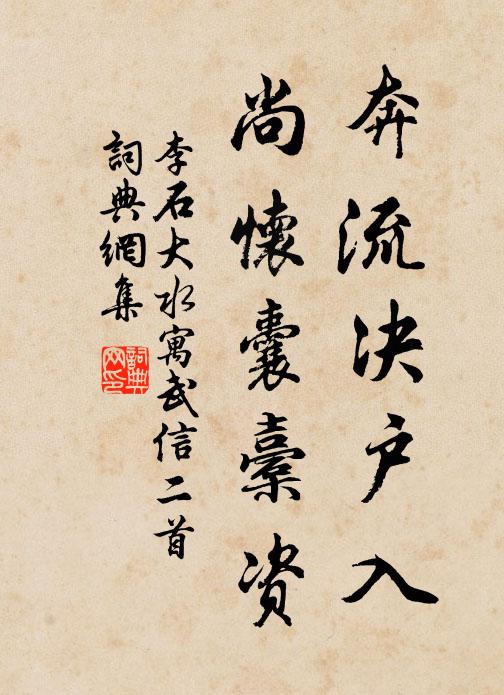 奔流決户入
尚懷囊橐資
李石大水寓武信二首
詞典網集
詞典網印